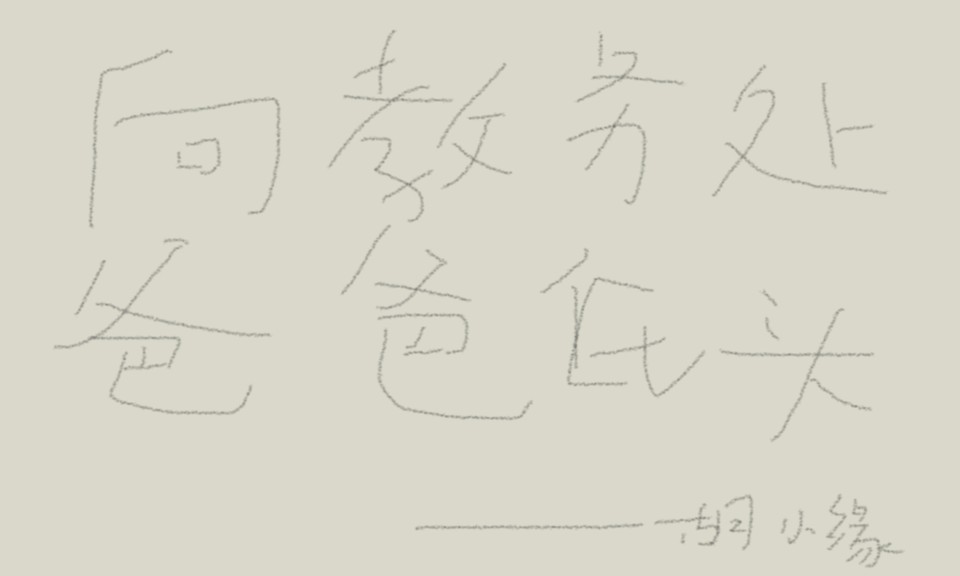 向教务处
爸爸低头
——胡小缘